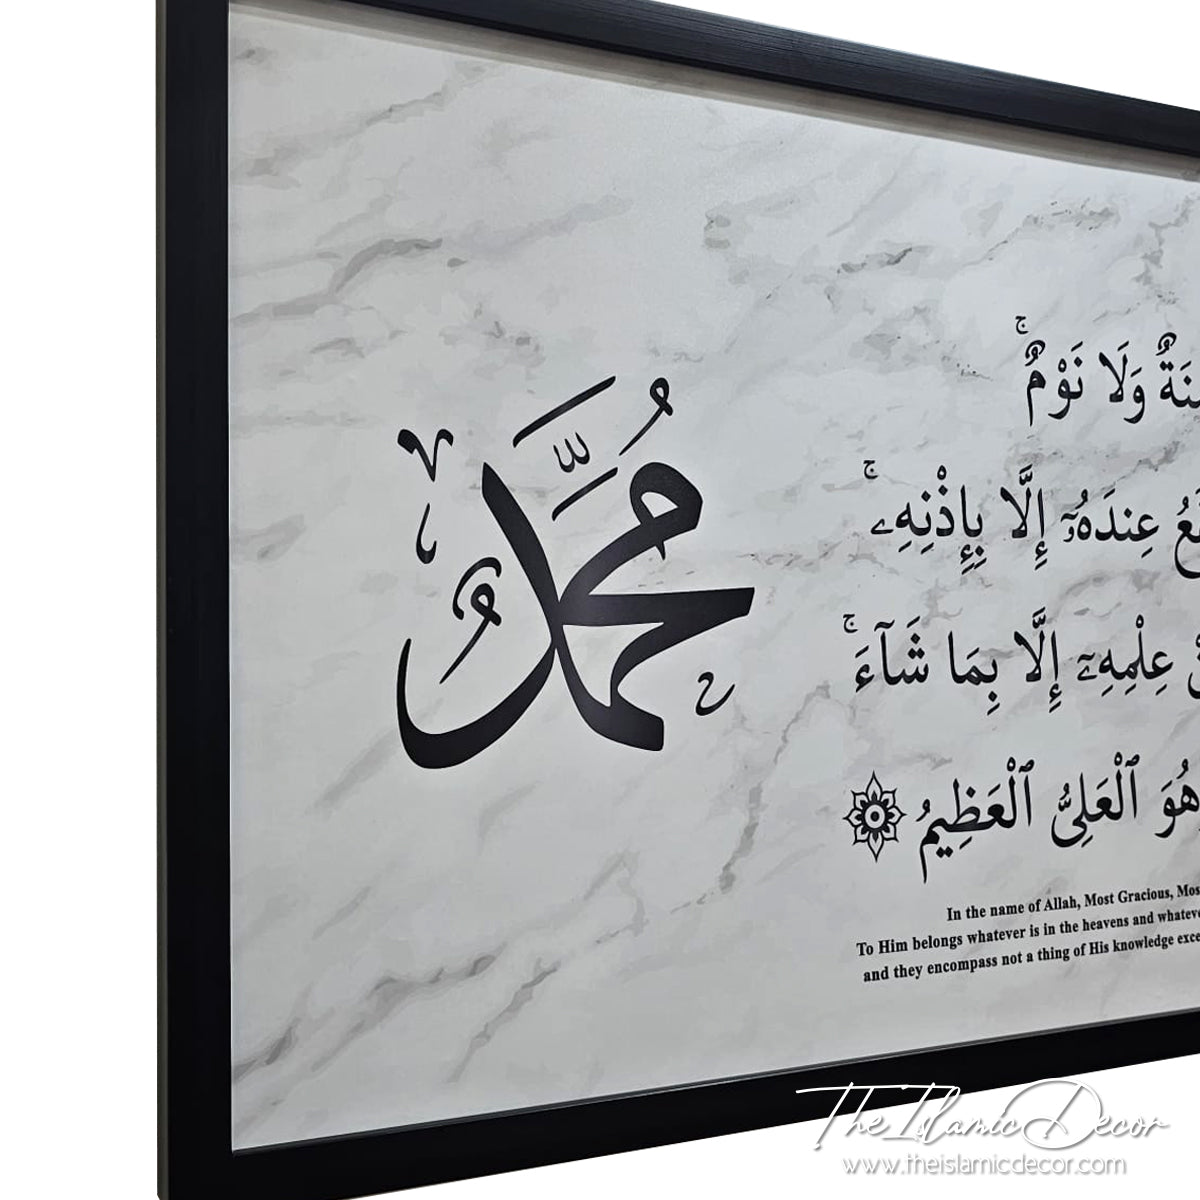 مُحَمَّدٌ
وَلَا نَوْمٌ ۚ
عِندَهُۥٓ إِلَّا بِإِذْنِهِۦ ۚ
عِلْمِهِۦٓ إِلَّا بِمَا شَآءَ ۚ
هُوَ ٱلْعَلِىُّ ٱلْعَظِيمُ
In the name of Allah, Most Gracious,
To Him belongs whatever is in the heavens and
and they encompass not a thing of His knowledge
The Islamic Decor
www.theislamicdecor.com